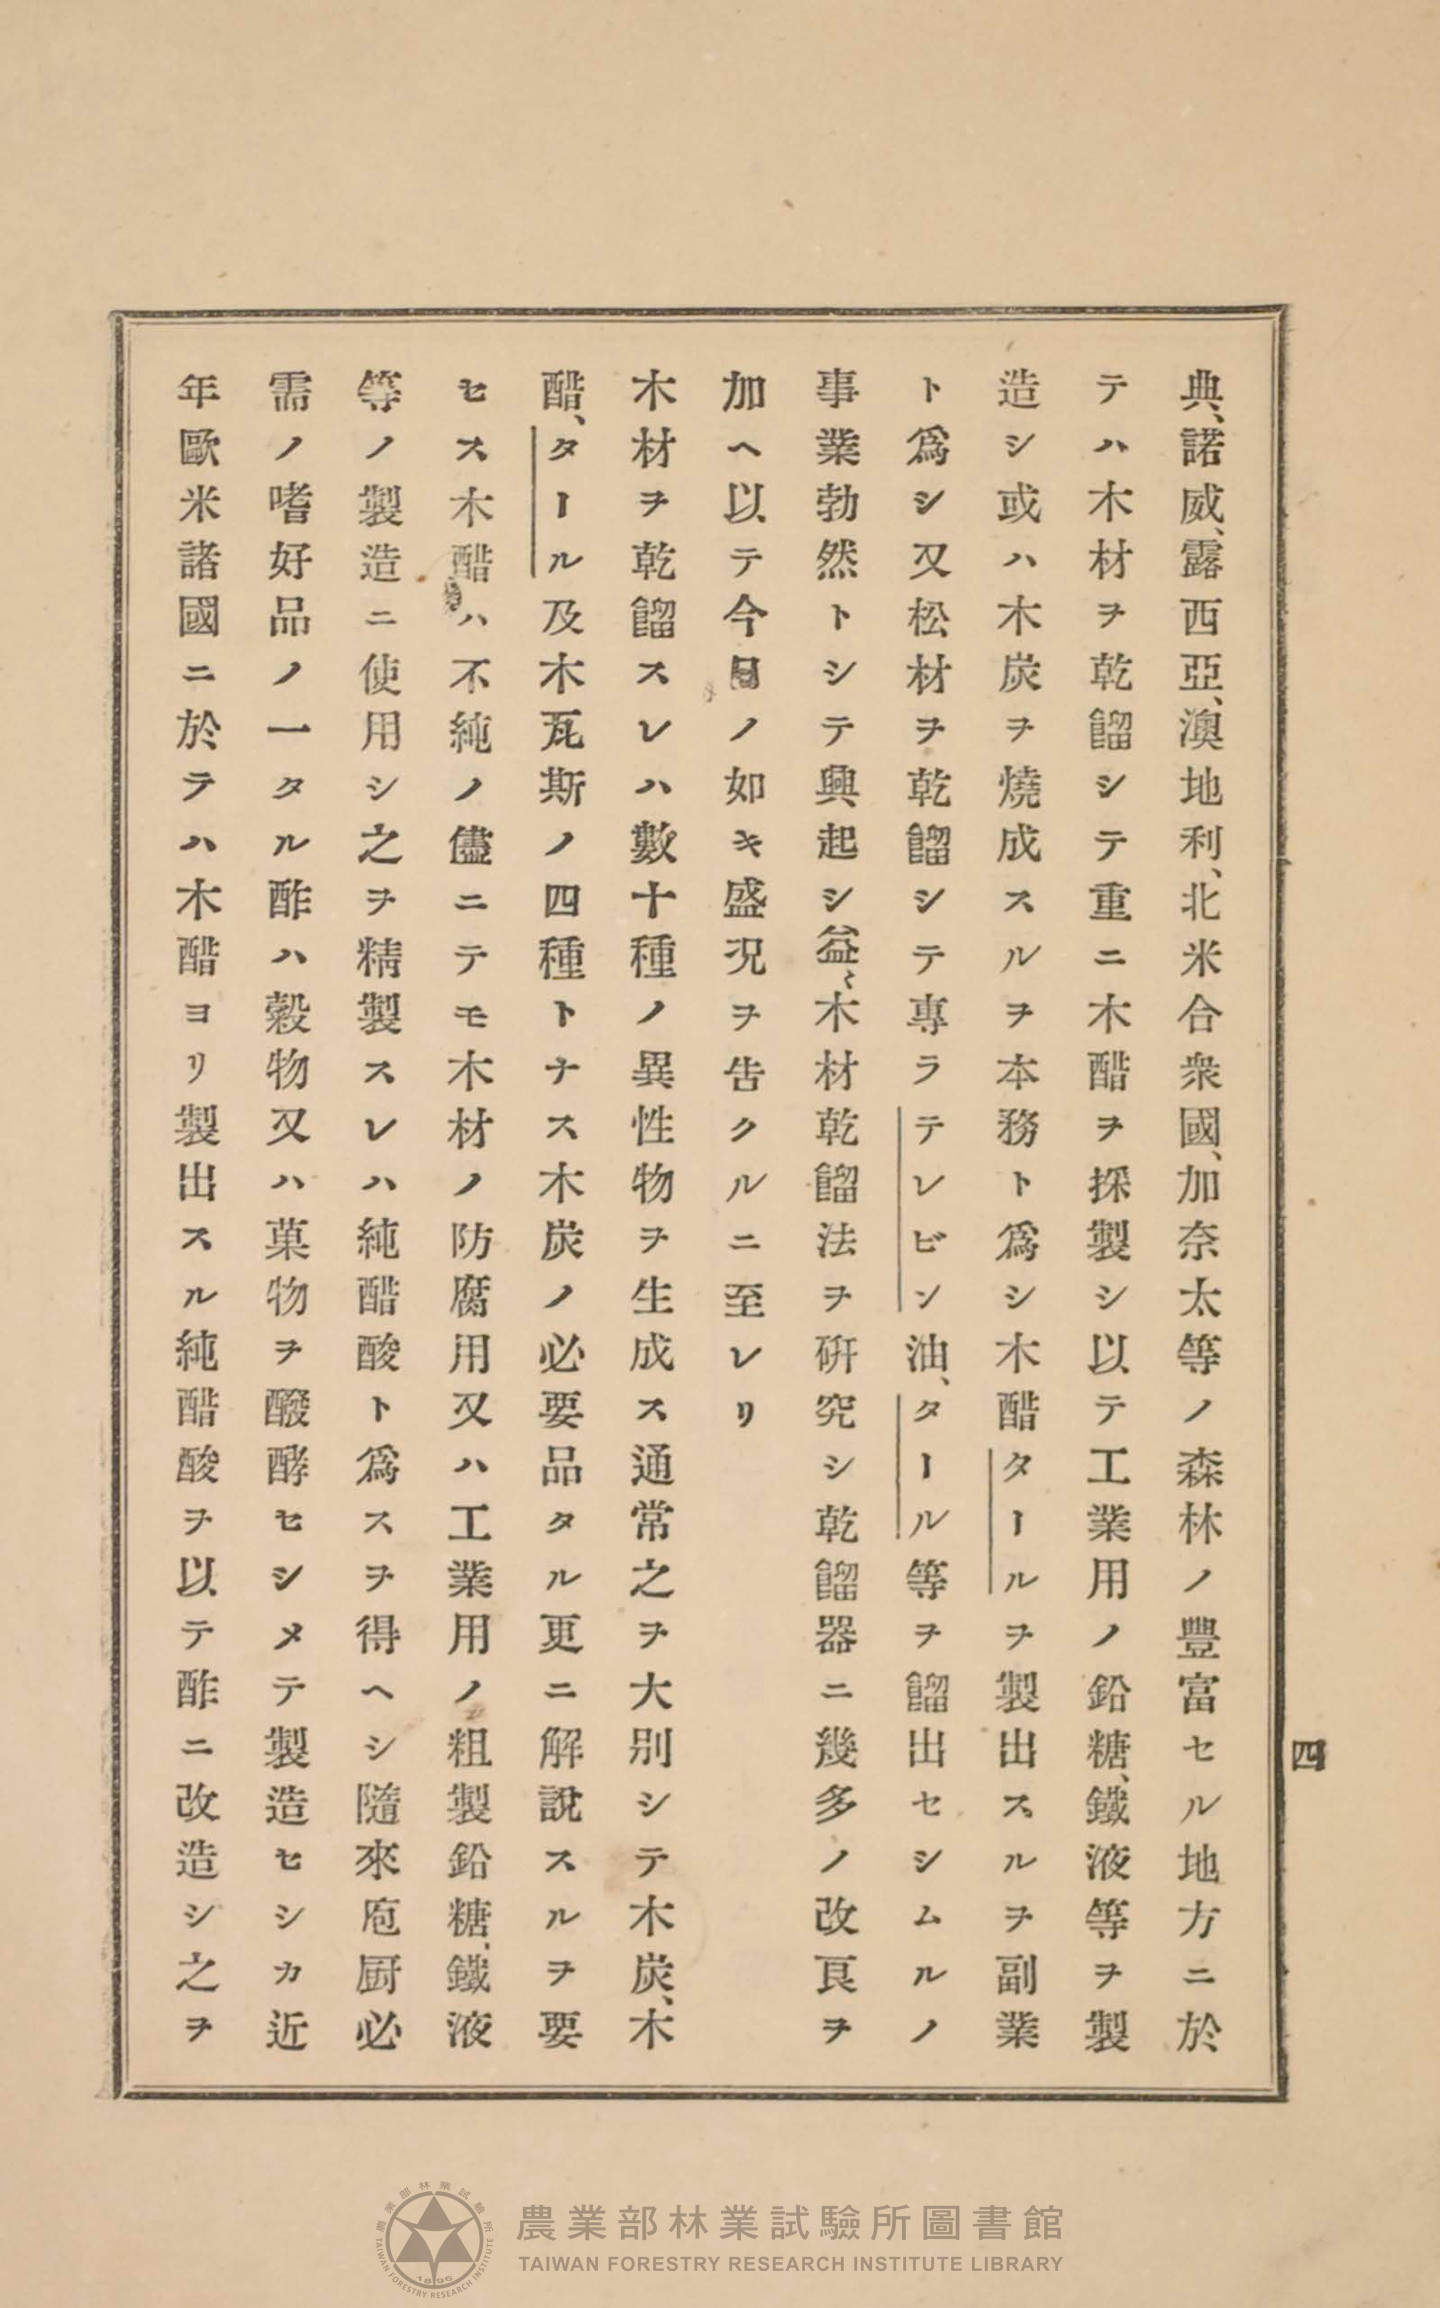 四
典、諾威、露西亞、澳地利、北米合衆國、加奈太等ノ森林ノ豐富セル地方ニ於
テハ木材ヲ乾餾シテ重ニ木醋ヲ採製シ以テ工業用ノ鉛糖、鐵液等ヲ製
造シ或ハ木炭ヲ燒成スルヲ本務ト爲シ木醋タールヲ製出スルヲ副業
ト爲シ又松材ヲ乾餾シテ專ラテレビン油、タール等ヲ餾出セシムルノ
事業勃然トシテ興起シ益〻木材乾餾法ヲ硏究シ乾餾器ニ幾多ノ改良ヲ
加ヘ以テ今日ノ如キ盛况ヲ吿クルニ至レリ
木材ヲ乾餾スレハ數十種ノ異性物ヲ生成ス通常之ヲ大別シテ木炭、木
醋、タール及木瓦斯ノ四種トナス木炭ノ必要品タル更ニ解說スルヲ要
セス木醋ハ不純ノ儘ニテモ木材ノ防腐用又ハ工業用ノ粗製鉛糖、鐵液
等ノ製造ニ使用シ之ヲ精製スレハ純醋酸ト爲スヲ得ヘシ隨來庖厨必
需ノ嗜好品ノ一タル酢ハ穀物又ハ菓物ヲ醱酵セシメテ製造セシカ近
年歐米諸國ニ於テハ木醋ヨリ製出スル純醋酸ヲ以テ酢ニ改造シ之ヲ
農業部林業試驗所圖書館
TAIWAN FORESTRY RESEARCH INSTITUTE LIBRARY
農業部林業試驗所
TAIWAN FORESTRY RESEARCH INSTITUTE
1896